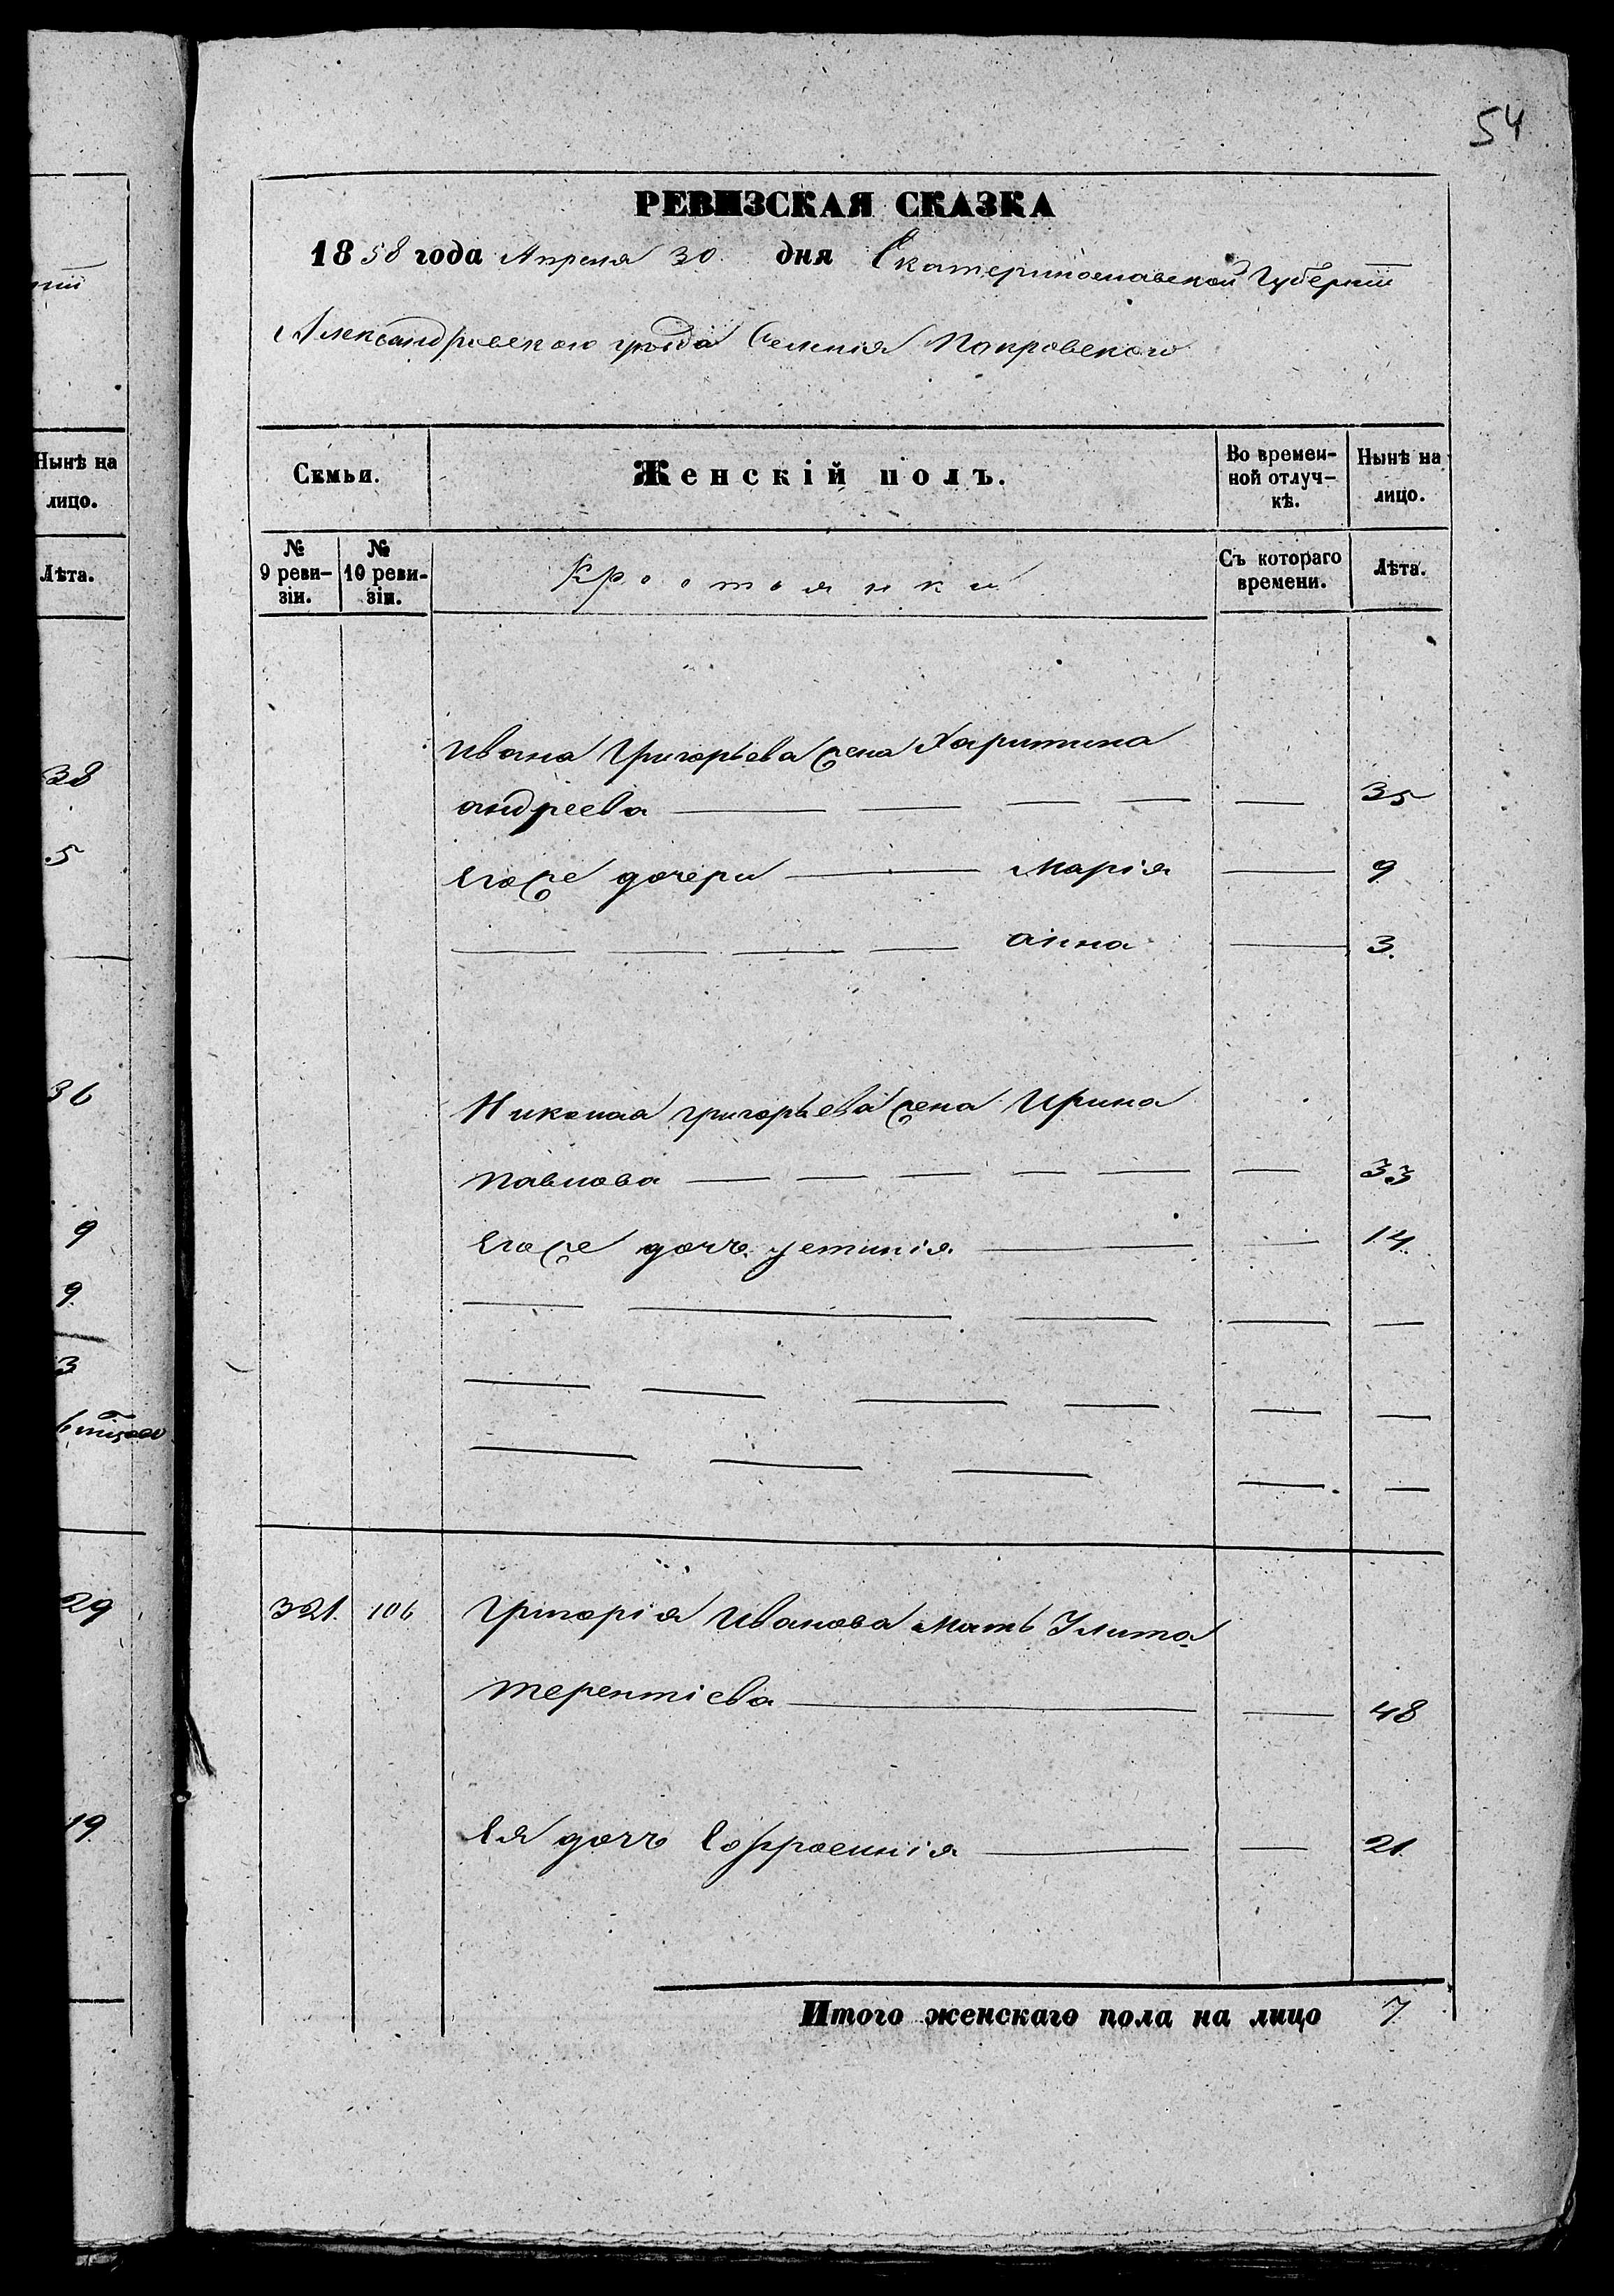 54
РЕВИЗСКАЯ СКАЗКА
1858 года Апреля 30 дня Екатеринославской Губерніи
Александровского уезда Селенія Покровского
Нынѣ на
лицо.
Лѣта.
38
5
36
9
9
3
29
19
Семьи.
Женскій полъ.
Во времен-
ной отлуч-
кѣ.
Нынѣ на
лицо.
№
9 реви-
зіи.
№
10 реви-
зіи.
Крестьянки
Съ котораго
времени.
Лѣта.
Ивана Григорьева жена Харитина
андреева — — — — — 35
Егоже дочери — Марія — 9
— — — — анна — 3.
Николая григорьева жена Ирина
павлова — — — — — — 33
Егоже дочь устинія — — 14.
321. 106 Григорія Иванова мать Улита
терентіева — — 48
Ея дочь Ефросинія — — 21.
Итого женскаго пола на лицо 7